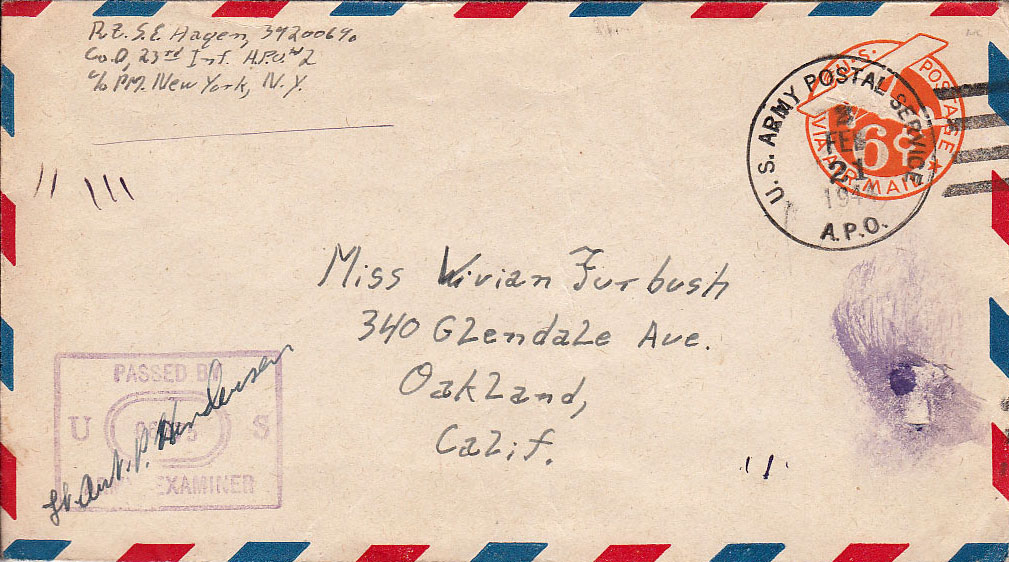 Pvt. S.E. Hagen, 39200690
Co.D, 23rd Inf. A.P.O. #2
c/o P.M. New York, N.Y.
U.S. POSTAGE
VIA AIR MAIL
6¢
U.S. ARMY POSTAL SERVICE
FEB
21
194
A.P.O.
Miss Vivian Furbush
340 Glendale Ave.
Oakland,
Calif.
PASSED BY
U S
ARMY EXAMINER
Lt. P. Henderson